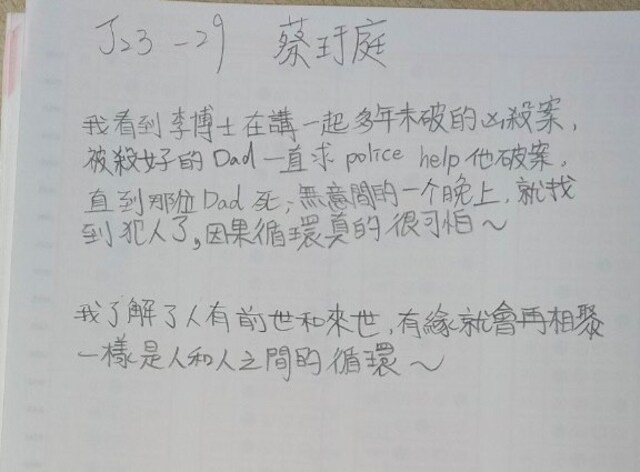 J23-29 蔡玗庭
我看到李博士在講一起多年未破的凶殺案,
被殺好的Dad一直求 police help 他破案,
直到那位Dad死,無意間的一个晚上,就找
到犯人了,因果循環真的很可怕~
我了解了人有前世和來世,有緣就會再相聚
一樣是人和人之間的循環~